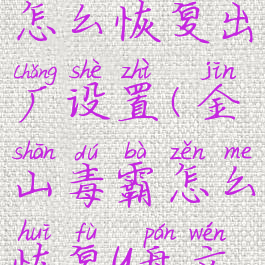 怎么恢复出
chǎng shè zhì jīn
厂设置(金
shān dú bà zěn me
山毒霸怎么
huī fù pán wén
恢复U盘文